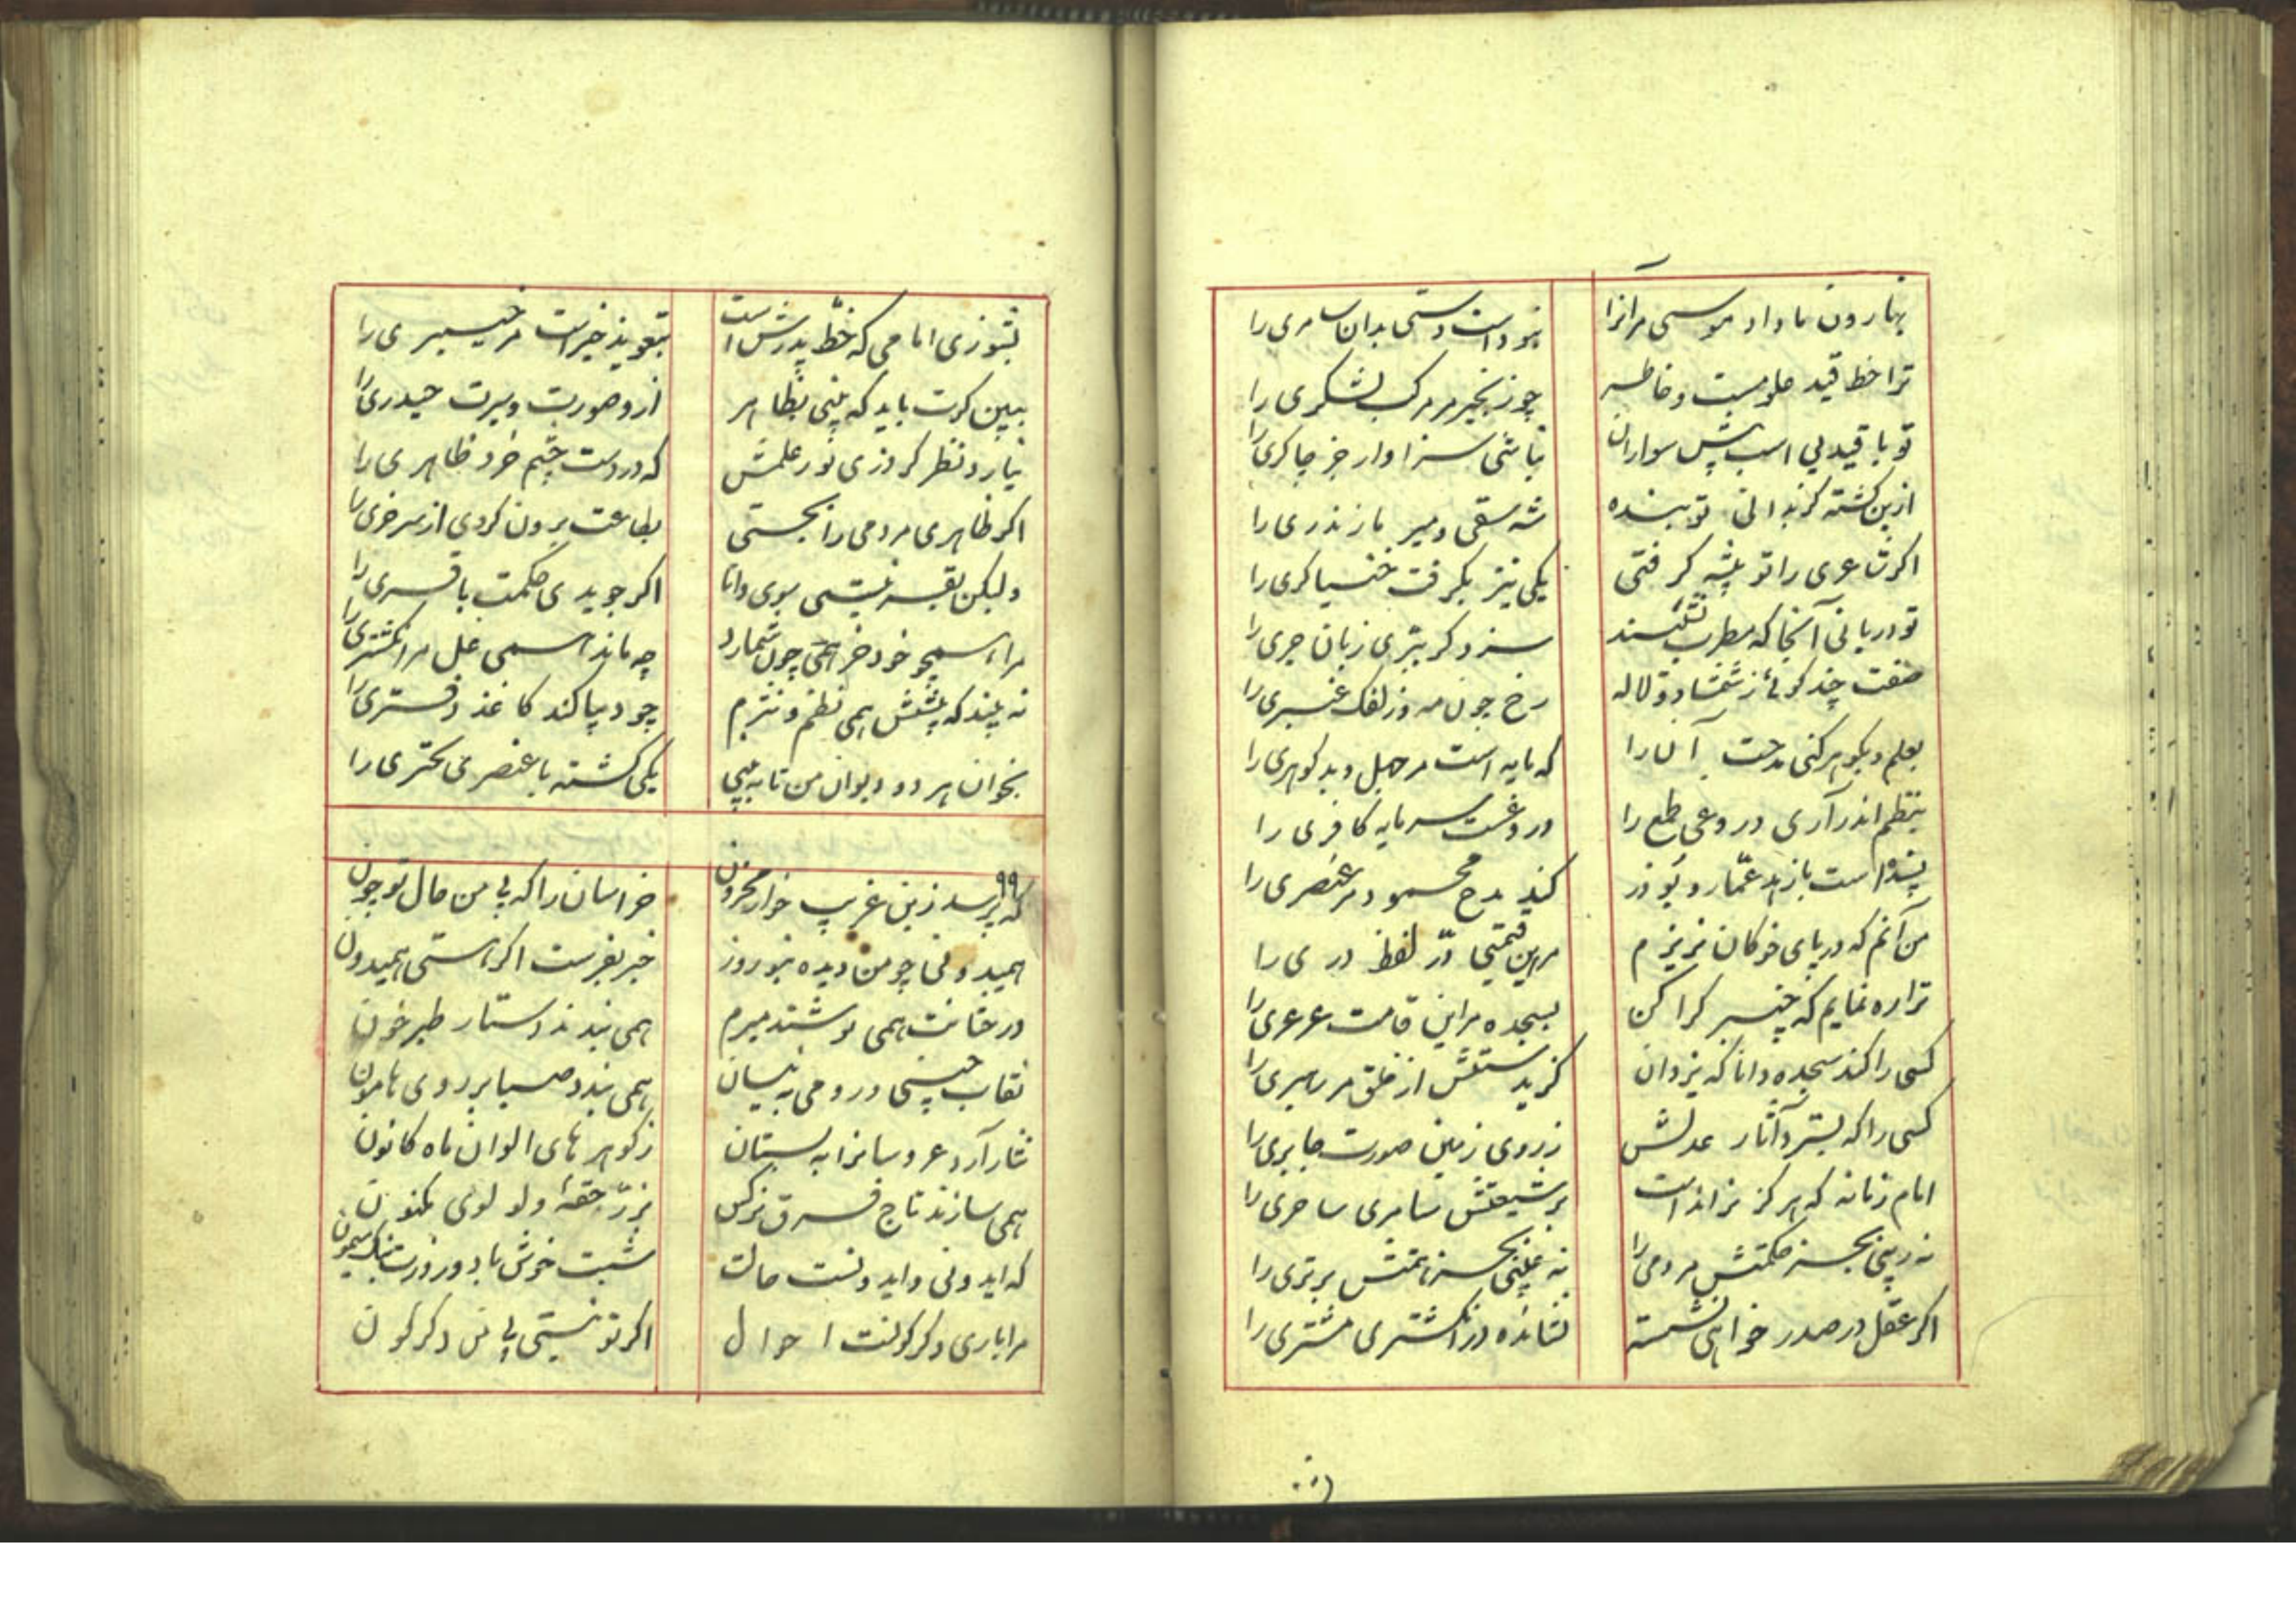 بهارون ما داد موسی مرانرا نبوداست دستی بدان سامری را
ترا خط قید علومست و خاطر چو زنجیر مر مرکب لشکری را
تو با قید بی اسب پیش سواران نباشی سزاوار جز چاکری را
ازین کشته کر بدانی تو بنده شه سقی و میر مازندری را
اکر شاعری را تو پیشه کرفتی یکی نیز بکرفت خنیاکری را
تو درپانی آنجا که مطرب نشیند سزد کر ببری زبان جری را
صفت چند کوئی ز شمشاد و لاله رخ چون مه و زلفک عنبری را
بعلم و بکوهر کنی مدحت آنرا که مایه است مر جهل و بدکوهری را
بنظم اندر آری دروغی طمع را دروغست سرمایه کافری را
پسنداست با زهد عمار و بوذر کند مدح محمود مر عنصری را
من آنم که در پای خوکان نریزم مرین قیمتی در لفظ دری را
ترا ره نمایم که چنبر کرا کن بسجده مراین قامت عرعری را
کسی را کند سجده دانا که یزدان کزیدستش از خلق مر رهبری را
کسی را که بسترد آثار عدلش ز روی زمین صورت جابری را
امام زمانه که هرکز نراندست بر شیعتش سامری ساحری را
نه ریبی بجز حکمتش مردمی را نه عیبی بجز همتش برتری را
اکر عقل در صدر خواهی نشسته نشانده در انکشتری مشتری را
بشو زی امامی که خط پدرش است بتعویذ خیرات مر خیبری را
ببین کرت باید که بینی بظاهر ازو صورت و سیرت حیدری را
نیارد نظر کرد زی نور علمش که در دست چشم خرد ظاهری را
اکر ظاهری مردمی را بجستی بطاعت برون کردی از سر خری را
ولیکن بقر نیستی سوی دانا اکر جویدی حکمت باقری را
مرا همچو خود خر همی چون شمارد چه ماند همی غل مر انکشتری را
نه بیند که پیشش همی نظم و نثرم چو دیبا کند کاغذ دفتری را
بخوان هر دو دیوان من تا ببینی یکی کشته با عنصری بحتری را
۹۹
که پرسد زین غریب خوار محزون خراسان را که بی من حال تو چون
همیدونی چو من دیده بنوروز خبر بفرست اکر هستی همیدون
درختانت همی پوشند میرم همی بندند دستار طبرخون
نقاب چینی و رومی به نیسان همی بندد صبا بر روی هامون
نثار آرد عروسانرا به بستان ز کوهر های الوان ماه کانون
همی سازند تاج فرق نرکس بزر حقه و لولوی مکنون
که ایدونی و ایدونست حالت شبت خوش باد و روزت نیک و میمون
مرا باری دکرکونست احوال اکر تو نیستی بی من دکرکون